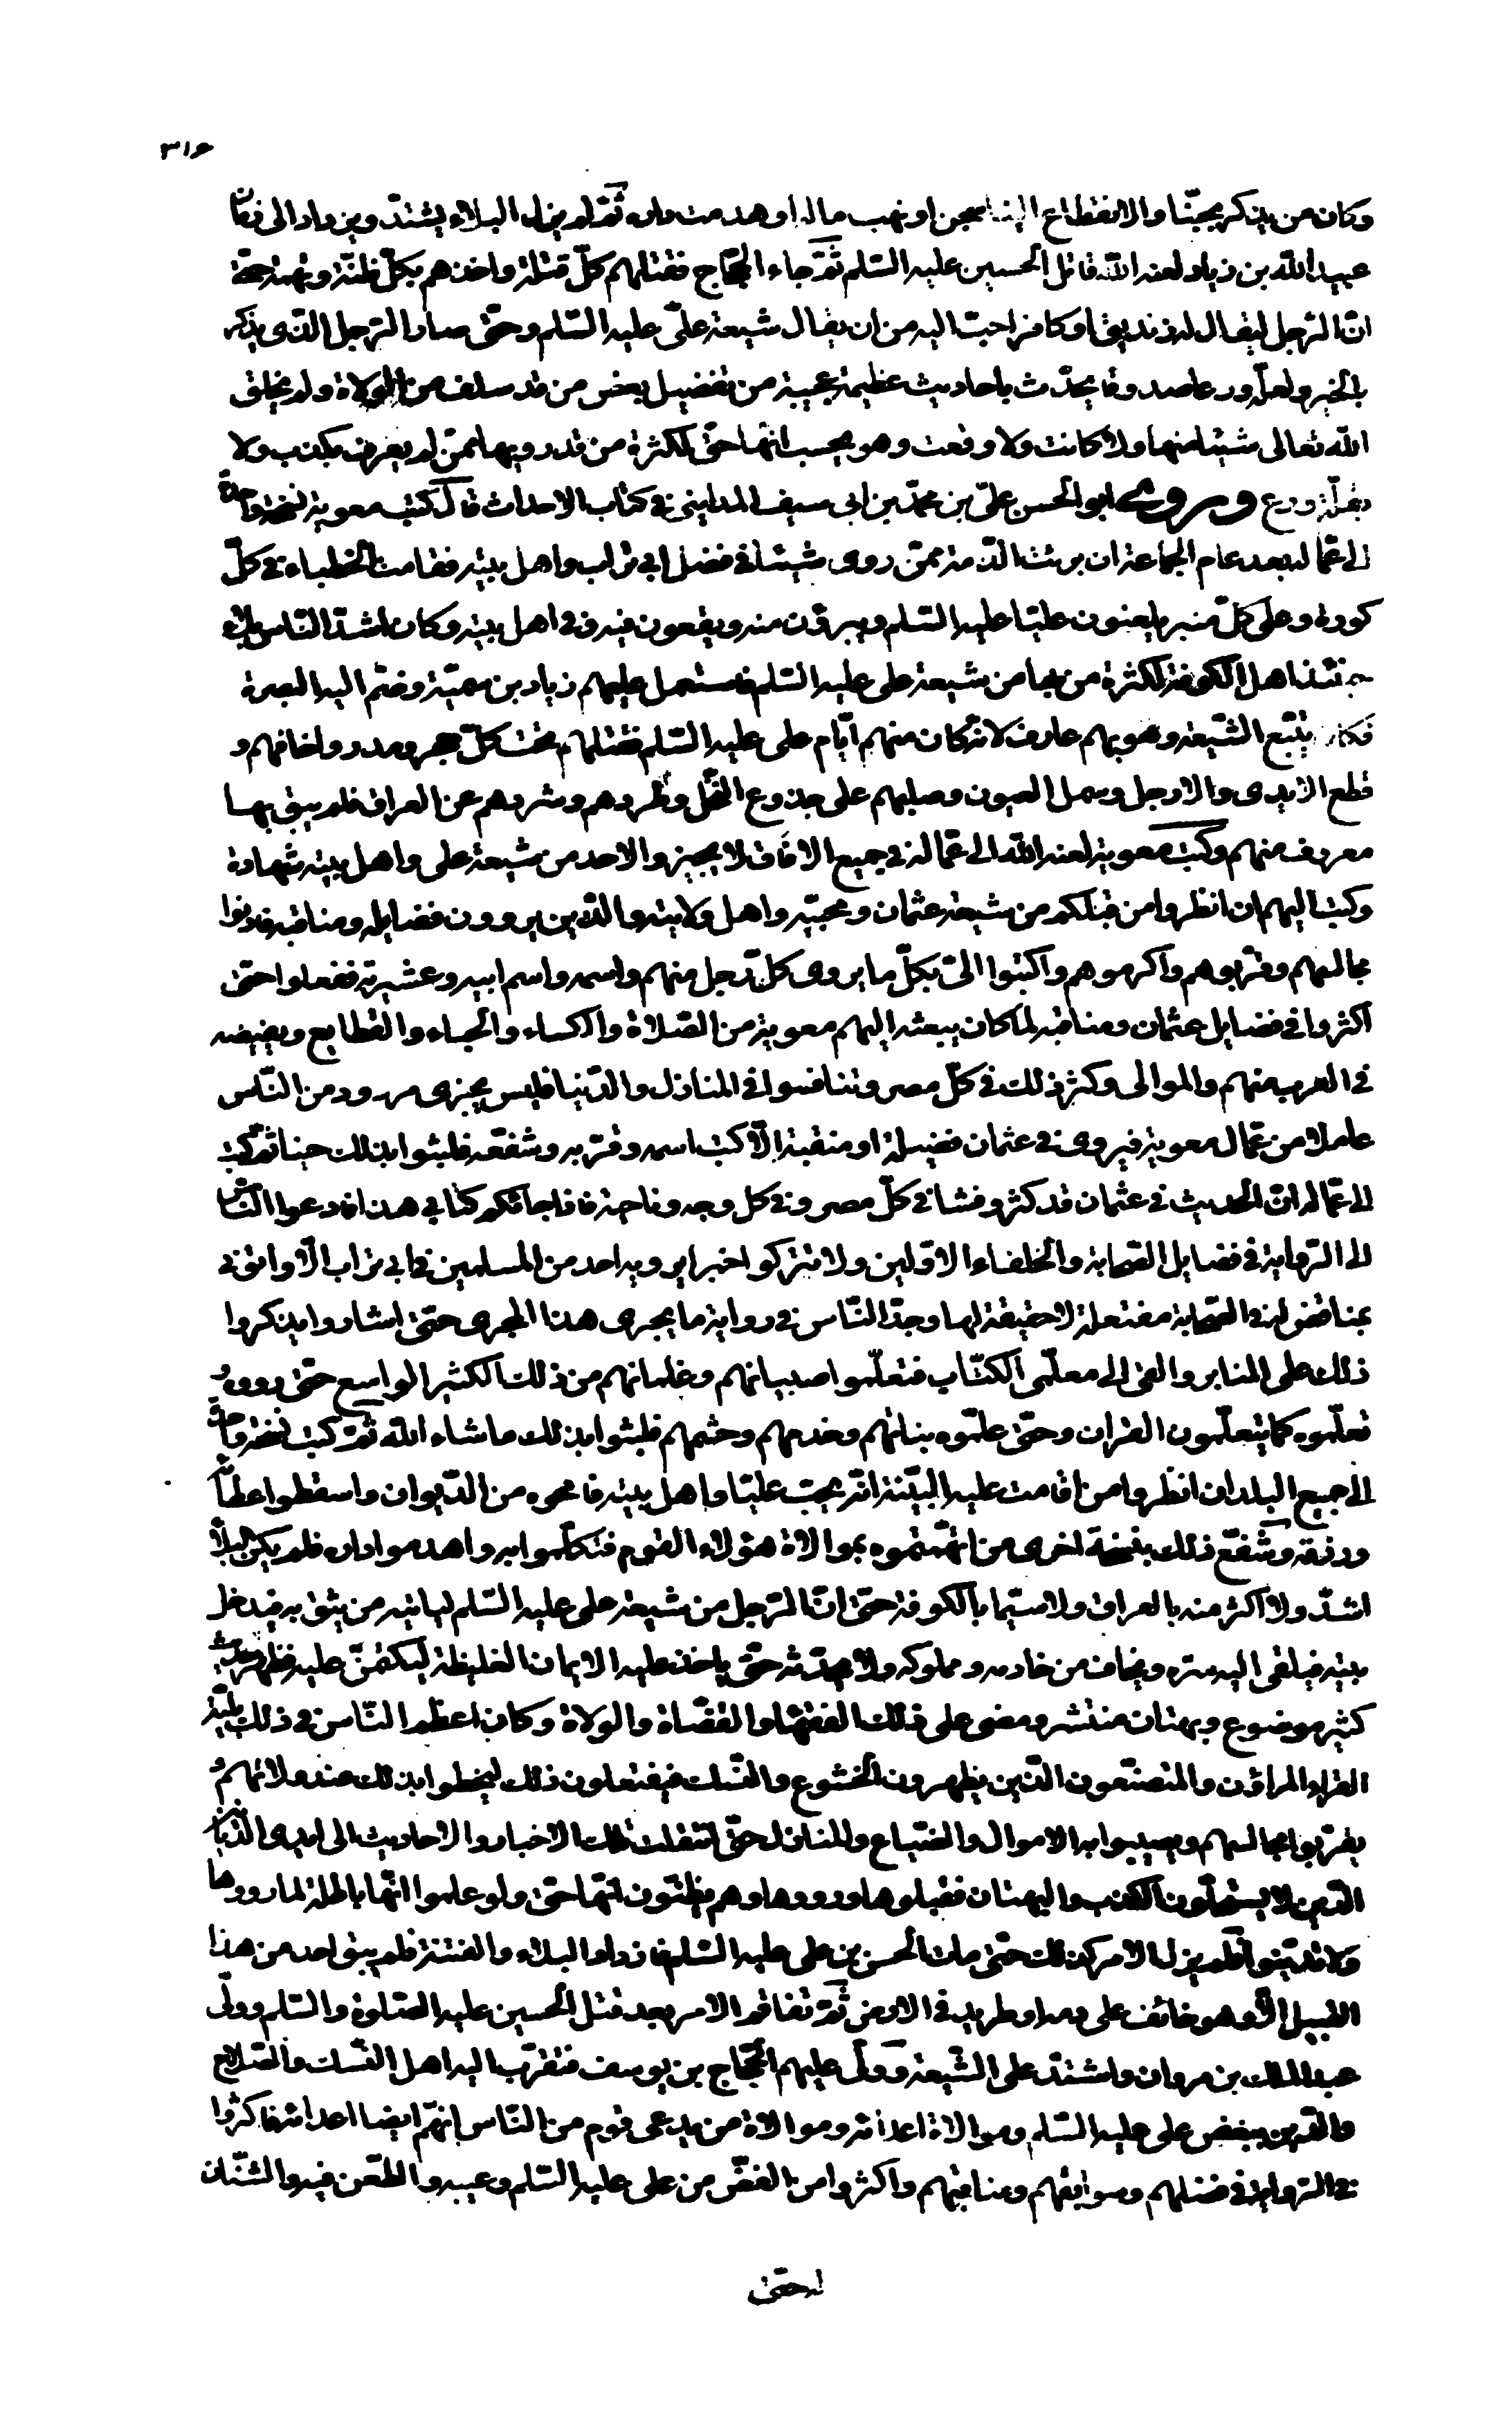 ٣١٥
وكان من يذكر بحبّنا والانقطاع الينا سجن او نهب ماله او هدمت داره ثمّ لم يزل البلاء يشتدّ ويزداد الى زمان
عبيد الله بن زياد لعنه الله قاتل الحسين عليه السّلم ثمّ جاء الحجّاج فقتلهم كلّ قتلة واخذهم بكلّ ظنّة وتهمة حتّى
انّ الرّجل ليقال له زنديق او كافر احبّ اليه من ان يقال شيعة علىّ عليه السّلم وحتّى صار الرّجل الّذى يذكر
بالخير ولعلّه ورعا صدوقا يحدّث باحاديث عظيمة عجيبة من تفضيل بعض من قد سلف من الولاة ولم يخلق
الله تعالى شيئا منها ولا كانت ولا وقعت وهو يحسب انّها حقّ لكثرة من قد رويها ممّن لم يعرف بكذب ولا
بقلّة ورع وروى ابو الحسن علىّ بن محمّد بن ابى سيف المداينى فى كتاب الاحداث قال كتب معوية نسخة واحدة
الى عمّاله بعد عام الجماعة ان برئت الذّمة ممّن روى شيئا فى فضل ابى تراب واهل بيته فقامت الخطباء فى كلّ
كورة وعلى كلّ منبر يلعنون عليّا عليه السّلم ويبرؤن منه ويقعون فيه وفى اهل بيته وكان اشدّ النّاس بلاء
حينئذ اهل الكوفة لكثرة من بها من شيعة على عليه السّلم فاستعمل عليهم زياد بن سميّة وضمّ اليه البصرة
فكان يتّبع الشّيعة وهو بهم عارف لانّه كان منهم ايّام على عليه السّلم فقتلهم تحت كلّ حجر ومدر واخافهم و
قطع الايدى والارجل وسمل العيون وصلبهم على جذوع النّخل وطردهم وشرّدهم عن العراق فلم يبق بها
معروف منهم وكتب معوية لعنه الله الى عمّاله فى جميع الافاق لا يجيزوا لاحد من شيعة على واهل بيته شهادة
وكتب اليهم ان انظروا من قبلكم من شيعة عثمان ومحبّيه واهل ولايته والّذين يروون فضايله ومناقبه فادنوا
مجالسهم وقرّبوهم واكرموهم واكتبوا الىّ بكلّ ما يروى كلّ رجل منهم واسمه واسم ابيه وعشيرته ففعلوا حتّى
اكثروا فى فضايل عثمان ومناقبه لما كان يبعثه اليهم معوية من الصّلاة والكساء والحباء والقطايع ويفيضه
فى العرب منهم والموالى وكثر ذلك فى كلّ مصر وتنافسوا فى المنازل والدّنيا فليس يجىء مردود من النّاس
عاملا من عمّال معوية فيروى فى عثمان فضيلة او منقبة الّا كتب اسمه وقرّبه وشفّعه فلبثوا بذلك حينا ثمّ كتب
الى عمّاله انّ الحديث فى عثمان قد كثر وفشا فى كلّ مصر وفى كل وجه وناحية فاذا جائكم كتابى هذا فادعوا النّاس
الى الرّواية فى فضايل الصّحابة والخلفاء الاوّلين ولا تتركوا خبرا يرويه احد من المسلمين فى ابى تراب الّا واتونى
بمناقض له فى الصّحابة مفتعلة لا حقيقة لها وجدّ النّاس فى رواية ما يجرى هذا المجرى حتّى اشاروا بذكروا
ذلك على المنابر والقى الى معلّمى الكتّاب فتعلّموا صبيانهم وغلمانهم من ذلك الكثير الواسع حتّى رووه و
تعلّموه كما يتعلّمون القران وحتّى علّموه بناتهم وخدمهم وحشمهم فلبثوا بذلك ما شاء الله ثمّ كتب نسخة واحدة
الى جميع البلدان انظروا من اقامت عليه البيّنة انّه يحبّ عليّا واهل بيته فامحوه من الدّيوان واسقطوا عطاءه
ورزقه وشفّع ذلك بنسخة اخرى من اتّهمتموه بموالاة هؤلاء القوم فنكّلوا به واهدموا داره فلم يكن البلاء
اشدّ ولا اكثر منه بالعراق ولا سيّما بالكوفة حتّى انّ الرّجل من شيعة على عليه السّلم ليأتيه من يثق به فيدخل
بيته فيلقى اليه سرّه ويخاف من خادمه ومملوكه ولا يحدّثه حتّى ياخذ عليه الايمان الغليظة ليكتمنّ عليه فظهر حديث
كثير موضوع وبهتان منتشر ومضى على ذلك الفقهاء والقضاة والولاة وكان اعظم النّاس فى ذلك بليّة
القراء المراؤن والمتصنّعون الّذين يظهرون الخشوع والنّسك فيفتعلون ذلك ليحظوا بذلك عند ولاتهم و
يقرّبوا مجالسهم ويصيبوا به الاموال والضّياع والمنازل حتّى انتقلت تلك الاخبار والاحاديث الى ايدى الدّيّانين
الّذين لا يستحلّون الكذب والبهتان فقبلوها ورووها وهم يظنّون انّها حقّ ولو علموا انّها باطلة لما رووها
ولا تديّنوا فلم يزل الامر كذلك حتّى مات الحسن بن على عليه السّلم فازداد البلاء والفتنة فلم يبق احد من هذا
القبيل الّا وهو خائف على دمه او طريد فى الارض ثمّ تفاقم الامر بعد قتل الحسين عليه الصّلوة والسّلم وولّى
عبد الملك بن مروان واشتدّ على الشّيعة وولّى عليهم الحجّاج بن يوسف فتقرّب اليه اهل النّسك والصّلاح
والدّين ببغض على عليه السّلم وموالاة اعدائه وموالاة من يدعى قوم من النّاس انّهم ايضا اعدائه فاكثروا
فى الرّواية فى فضلهم وسوابقهم ومناقبهم واكثروا من الغضّ من على عليه السّلم وعيبه والطّعن فيه والشّنآن
له حتّى